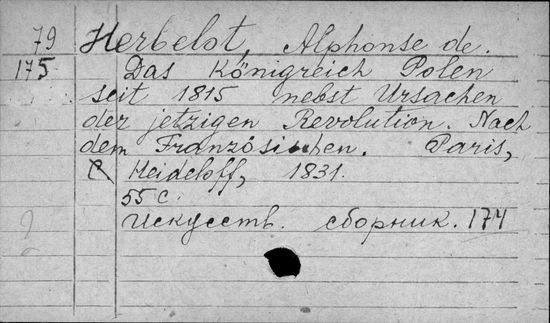 79 Herbelot, Alphonse de.
175 Das Königreich Polen
seit 1815 nebst Ursachen
der jetzigen Revolution. Nach
dem Französischen. Paris,
Heideloff, 1831.
55 с.
Искусств. сборник. 174